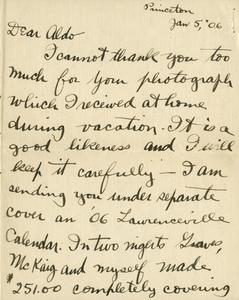 Princeton
Jan 5, '06
Dear Aldo
I cannot thank you too
much for your photograph
which I received at home
during vacation. It is a
good likeness and I will
keep it carefully — I am
sending you under separate
cover an '06 Lawrenceville
Calendar. In two nights Graves,
McKaig and myself made
$251.00 completely covering